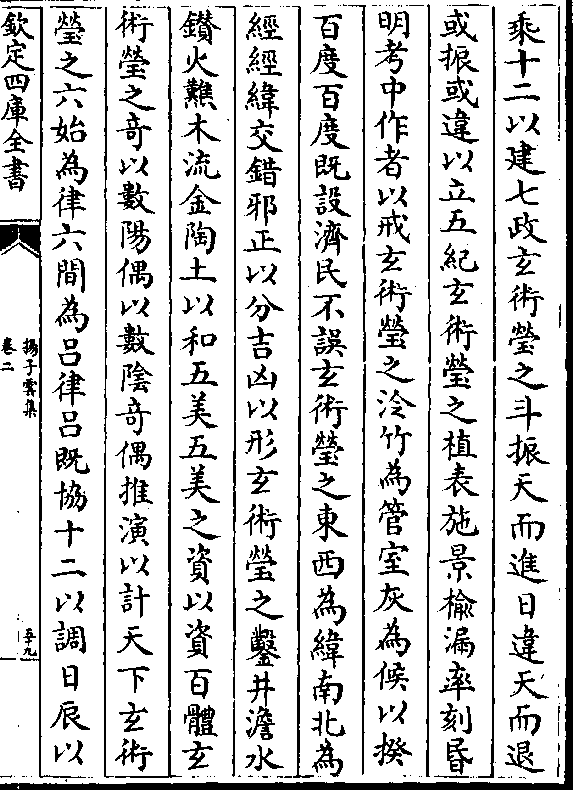 乘十二以建七政玄術瑩之斗振天而進日違天而退
或振或違以立五紀玄術瑩之植表施景榆漏率刻昬
明考中作者以戒玄術瑩之泠竹為管室灰為候以揆
百度百度既設濟民不誤玄術瑩之東西為緯南北為
經經緯交錯邪正以分吉凶以形玄術瑩之鑿井澹水
鑚火難木流金陶土以和五美五美之資以資百體玄
術瑩之竒以數陽偶以數陰竒偶推演以計天下玄術
瑩之六始為律六間為吕律吕既協十二以調日辰以
欽定四庫全書
揚子雲集
卷二
五十九